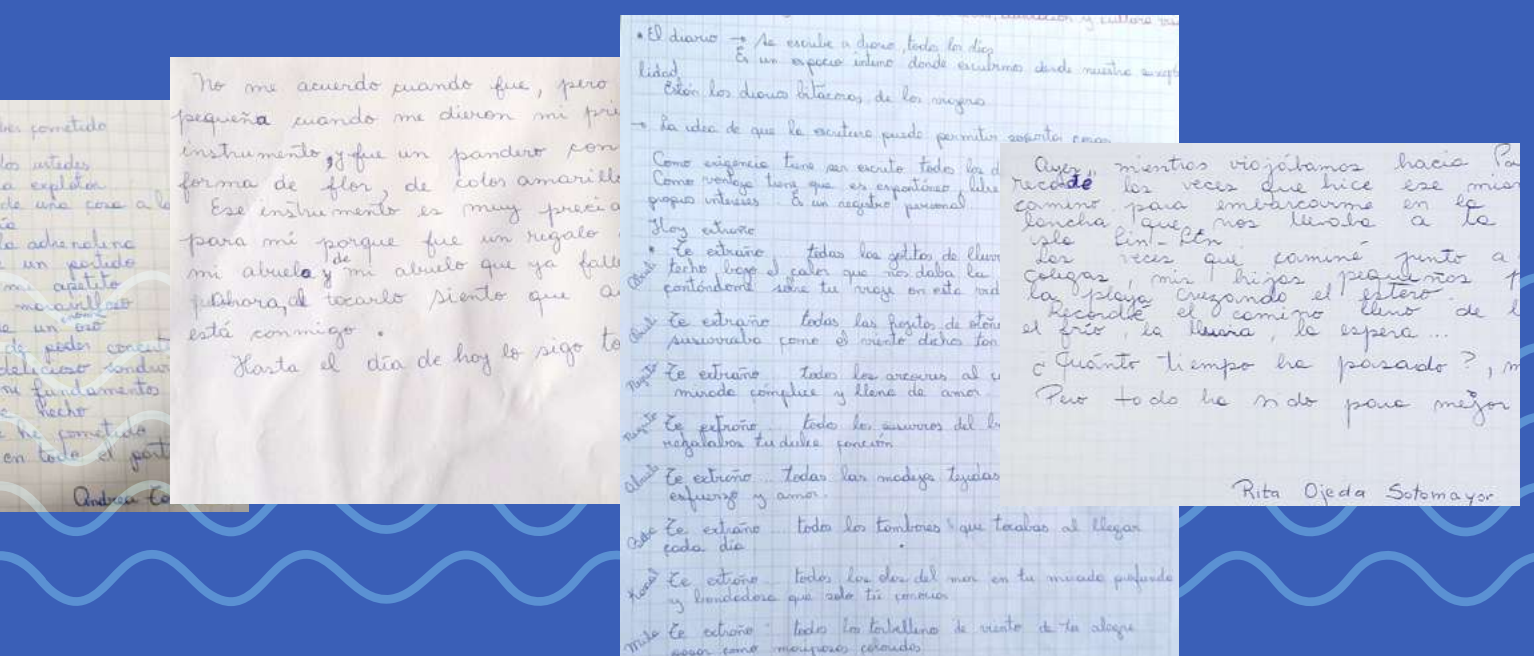 cometido
los ustedes
a explotar
de una cosa a la
la adrenalina
e un partido
mi apetito
maravilloso
e un oso
de poder
delicioso
fundamentos
e hecho
e he cometido
en todo el part
Andrea
No me acuerdo cuando fue, pero
pequeña cuando me dieron mi pri
instrumento, y fue un pandero con
forma de flor, de color amarillo
Ese instrumento es muy precia
para mí porque fue un regalo
mi abuela y de mi abuelo que ya fall
ahora, al tocarlo siento que
está conmigo.
Hasta el día de hoy lo sigo to
y cultura
• El diario → se escribe a diario, todos los días
Es un espacio íntimo donde escribimos desde nuestra
lidad
Están los diarios bitácoras, de los viajeros
→ La idea de que la escritura puede permitir soportar cosas
Como exigencia tiene ser escrito todos los d
Como ventaja tiene que es espontáneo, libre
propios intereses. Es un registro personal.
Hoy extraño
• Te extraño todas las gotitas de lluvi
techo bajo el calor que nos daba la
contándome sobre tu viaje en esta
Abuel Te extraño todas las hojitas de otoñ
susurraba como el viento dichos
Te extraño... todos los arcoiris al
mirada cómplice y llena de amor.
Te extraño... todos los susurros del
regalabas tu dulce canción
Te extraño... todas las madejas tejidas
esfuerzo y amor.
Te extraño... todos los tambores que tocabas al llegar
cada día
Te extraño... todas las olas del mar en tu mirada profunda
y bondadosa que solo tú conocías
Te extraño... todos los torbellinos de viento de tu alegre
como mariposas
Ayer, mientras viajábamos hacia Pa
recordé las veces que hice ese mism
camino para embarcarme en la
lancha que nos llevaba a la
isla Lin-Lin
Las veces que caminé junto a
colegas, mis hijos pequeños
la playa cruzando el estero.
Recordé el camino lleno de l
el frío, la lluvia, la espera...
¿Cuánto tiempo ha pasado?, m
Pero todo ha sido para mejor
Rita Ojeda Sotomayor